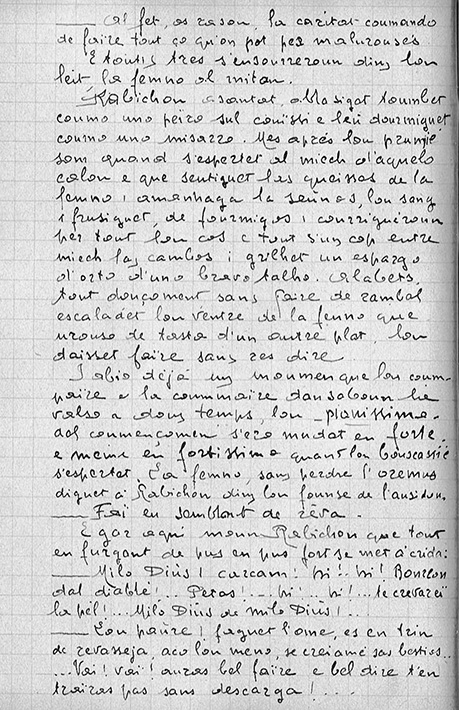 — Al fet, as rason, la caritat coumando
de faire tout ço qu'on pot pes malurousés
E toutis tres s'ensourreroun dins lou
leit la femno al mitan.
Rabichon asantat, ablasigat toumbet
coumo uno peiro sul couissi e lèu dourmiguet
coumo uno missarro. Mes après lou prumiè
som quand s'espertet al miech d'aquelo
calou e que sentiguet las queissos de la
femno i amanhaga la seunos, lou sang
i frusiquet, de fourmigos i courriguèroun
per tout lou cos e tout s'un cop entre
miech las cambos i grilhet un espargo
d'orto d'uno bravo talho. Alabets,
tout douçoment sans faire de rambal
escaladet lou ventre de la fenno que
urouso de tasta d'un autre plat, lou
daisset faire sans res dire
I abio déjà un moumen que lou coum-
paire e la coummaire dansaboun la
valso a dous temps, lou pianissimo
del coumençomen s'ero mudat en forte,
e meme en fortissimo quant lou bouscassiè
s'espertet. La femno, sans perdre l'oremus
diguet à Rabichon dins lou founse de l'ausidou.
— Fai en semblont de rèva.
E gar aqui moun Rabichon que tout
en furgant de pus en pus fort se met à crida:
— Milo Dius! carcam! hi!.. hi! Bourrou
dal diable!.. Petas!... hi!.. hi!... te crevarèi
la pèl!... Milo Dius de milo Dius!..
— Lou paure! faguet l'ome, es en trin
de revasseja, aco lou meno, se creiamé sas bestios..
...Vai! vai! auras bel faire e bel dire t'en
tiraras pas sans descarga!...